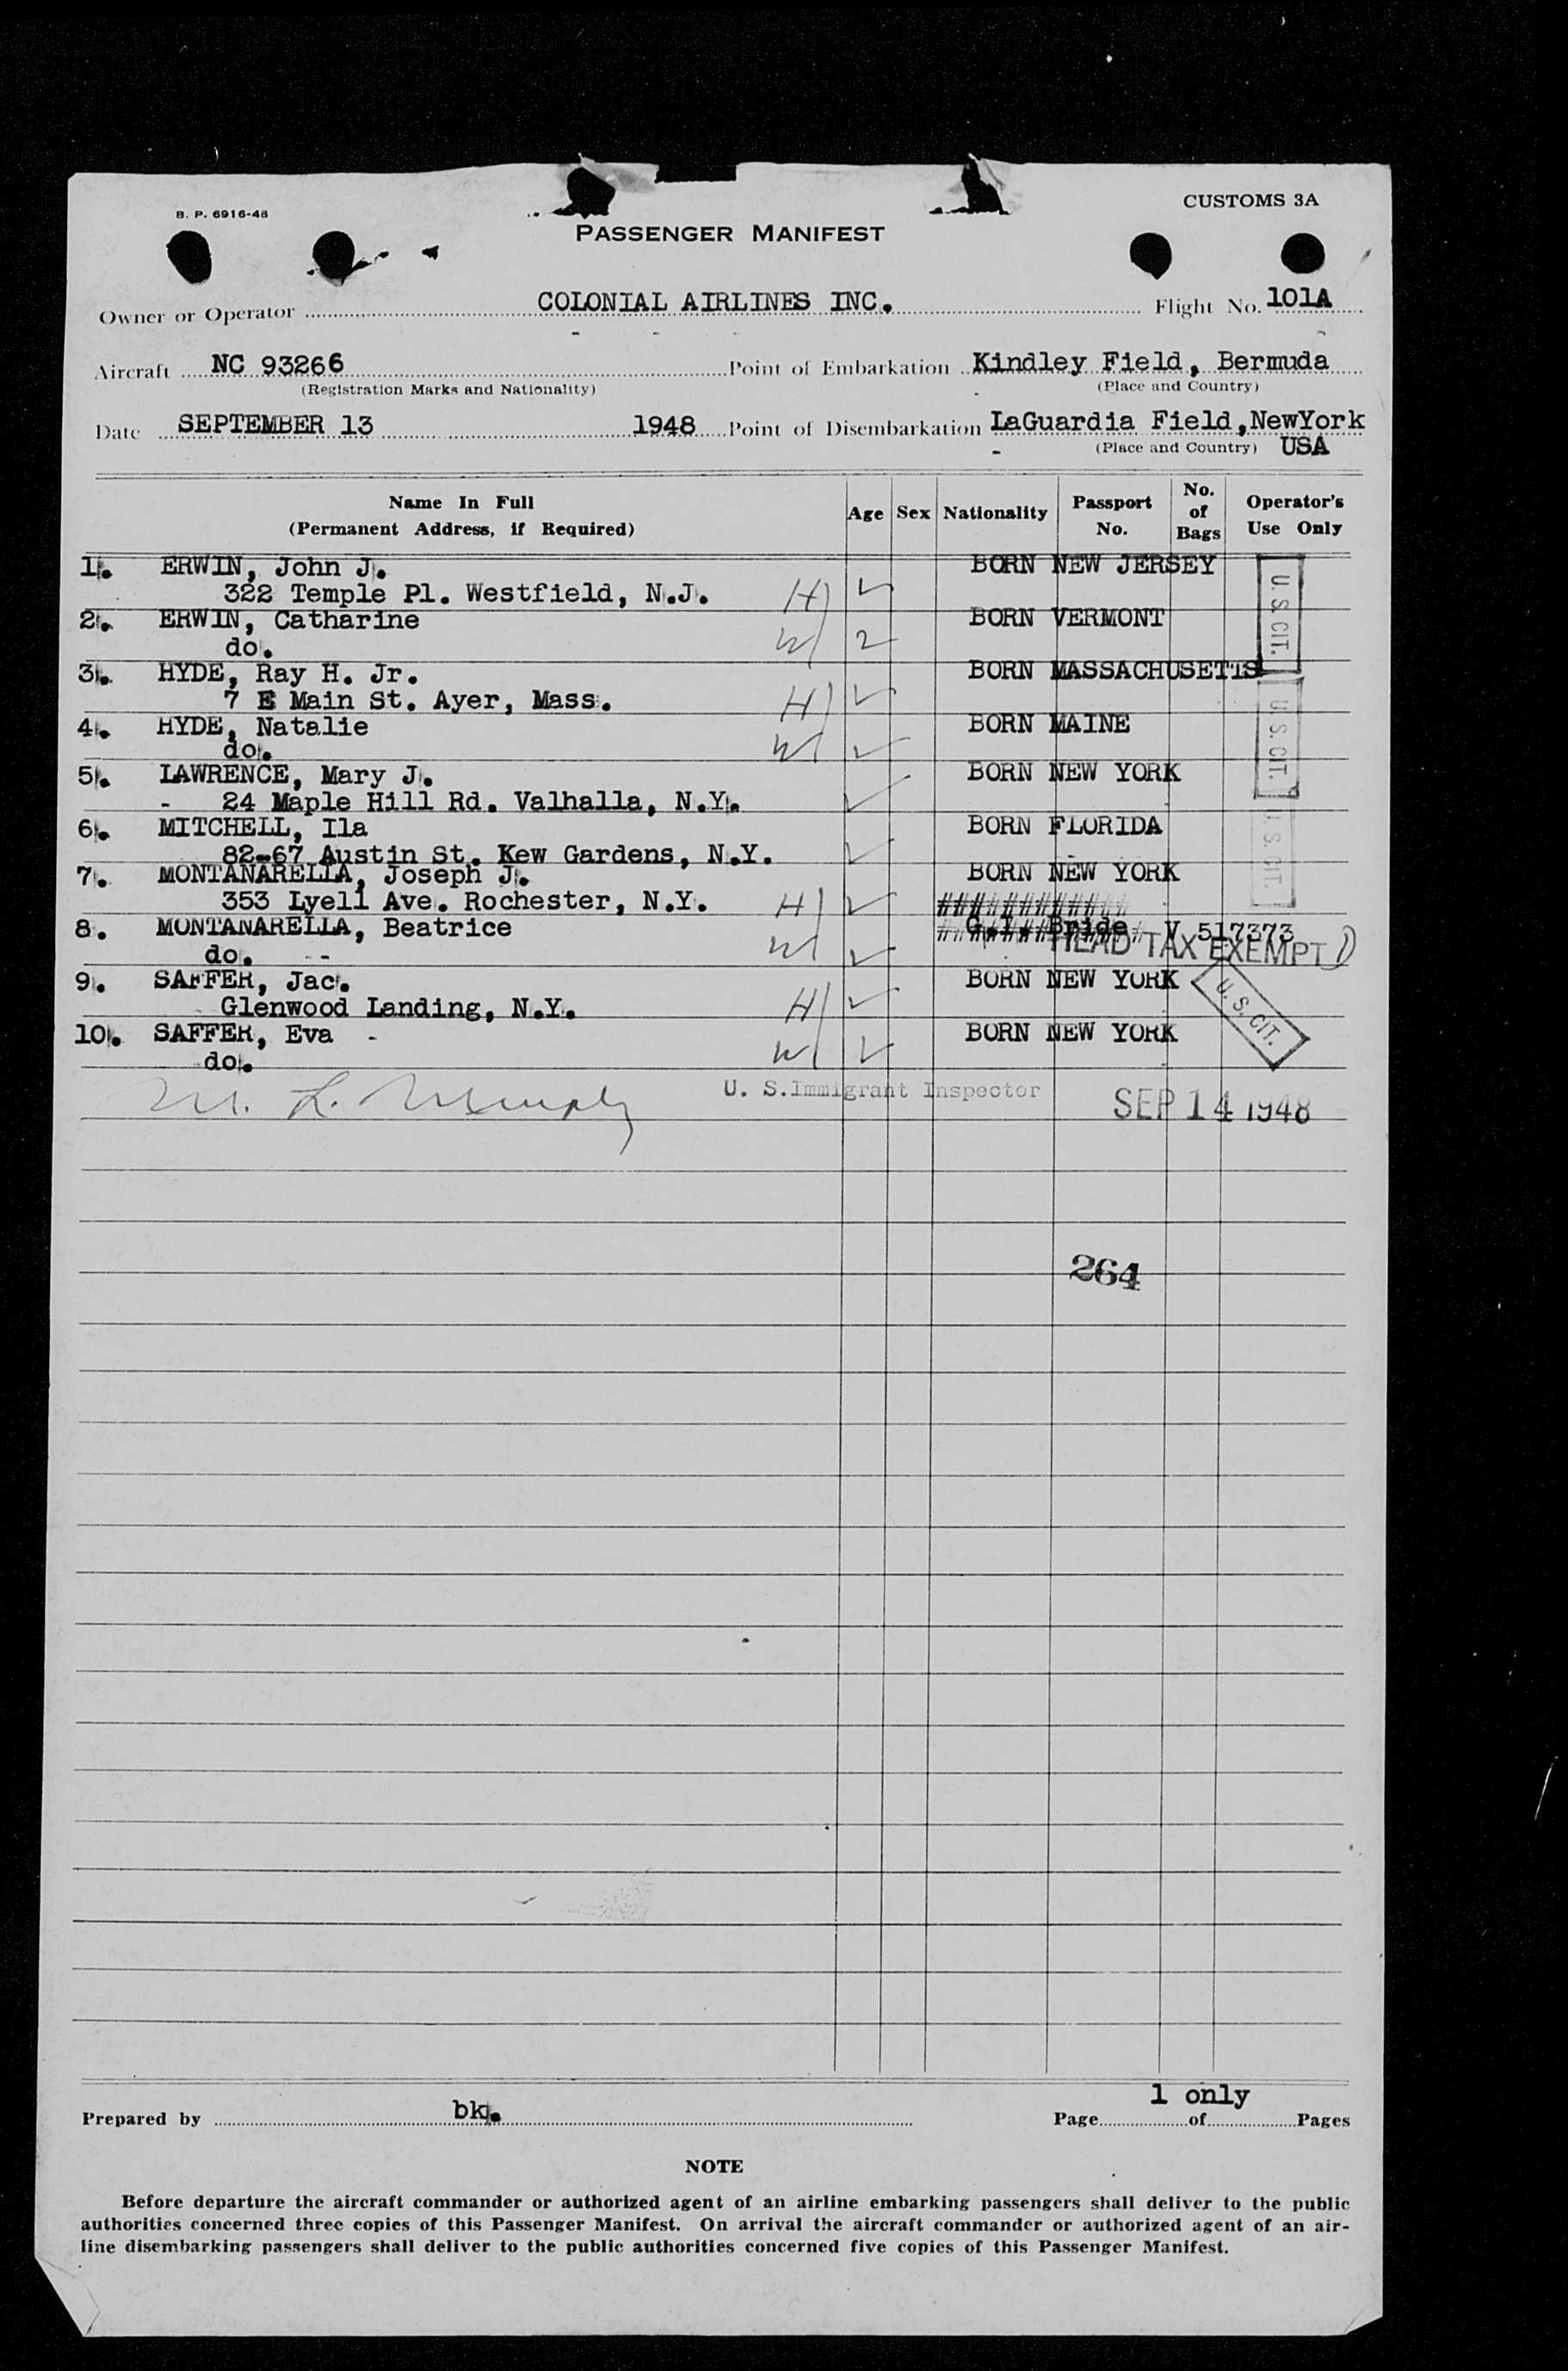 B. P. 6916-48
CUSTOMS 3A
PASSENGER MANIFEST
Owner or Operator COLONIAL AIRLINES INC. Flight No. 101A
Aircraft NC 93266 Point of Embarkation Kindley Field, Bermuda
(Registration Marks and Nationality) (Place and Country)
Date SEPTEMBER 13 1948 Point of Disembarkation LaGuardia Field, NewYork
(Place and Country) USA
Name In Full (Permanent Address, if Required) Age Sex Nationality Passport No. No. of Bags Operator's Use Only
1. ERWIN, John J. BORN NEW JERSEY
322 Temple Pl. Westfield, N.J. H
U. S. CIT.
2. ERWIN, Catharine BORN VERMONT
do. W
3. HYDE, Ray H. Jr. BORN MASSACHUSETTS
7 E Main St. Ayer, Mass. H
U. S. CIT.
4. HYDE, Natalie BORN MAINE
do. W
5. LAWRENCE, Mary J. BORN NEW YORK
- 24 Maple Hill Rd. Valhalla, N.Y.
6. MITCHELL, Ila BORN FLORIDA
82-67 Austin St. Kew Gardens, N.Y.
U. S. CIT.
7. MONTANARELLA, Joseph J. BORN NEW YORK
353 Lyell Ave. Rochester, N.Y. H ############
8. MONTANARELLA, Beatrice G.I. Bride V 517373
do. -- W HEAD TAX EXEMPT
9. SAFFER, Jac. BORN NEW YORK
Glenwood Landing, N.Y. H
U. S. CIT.
10. SAFFER, Eva - BORN NEW YORK
do. W
M. L. Murphy U. S. Immigrant Inspector SEP 14 1948
264
1 only
Prepared by bk. Page of Pages
NOTE
Before departure the aircraft commander or authorized agent of an airline embarking passengers shall deliver to the public
authorities concerned three copies of this Passenger Manifest. On arrival the aircraft commander or authorized agent of an air-
line disembarking passengers shall deliver to the public authorities concerned five copies of this Passenger Manifest.